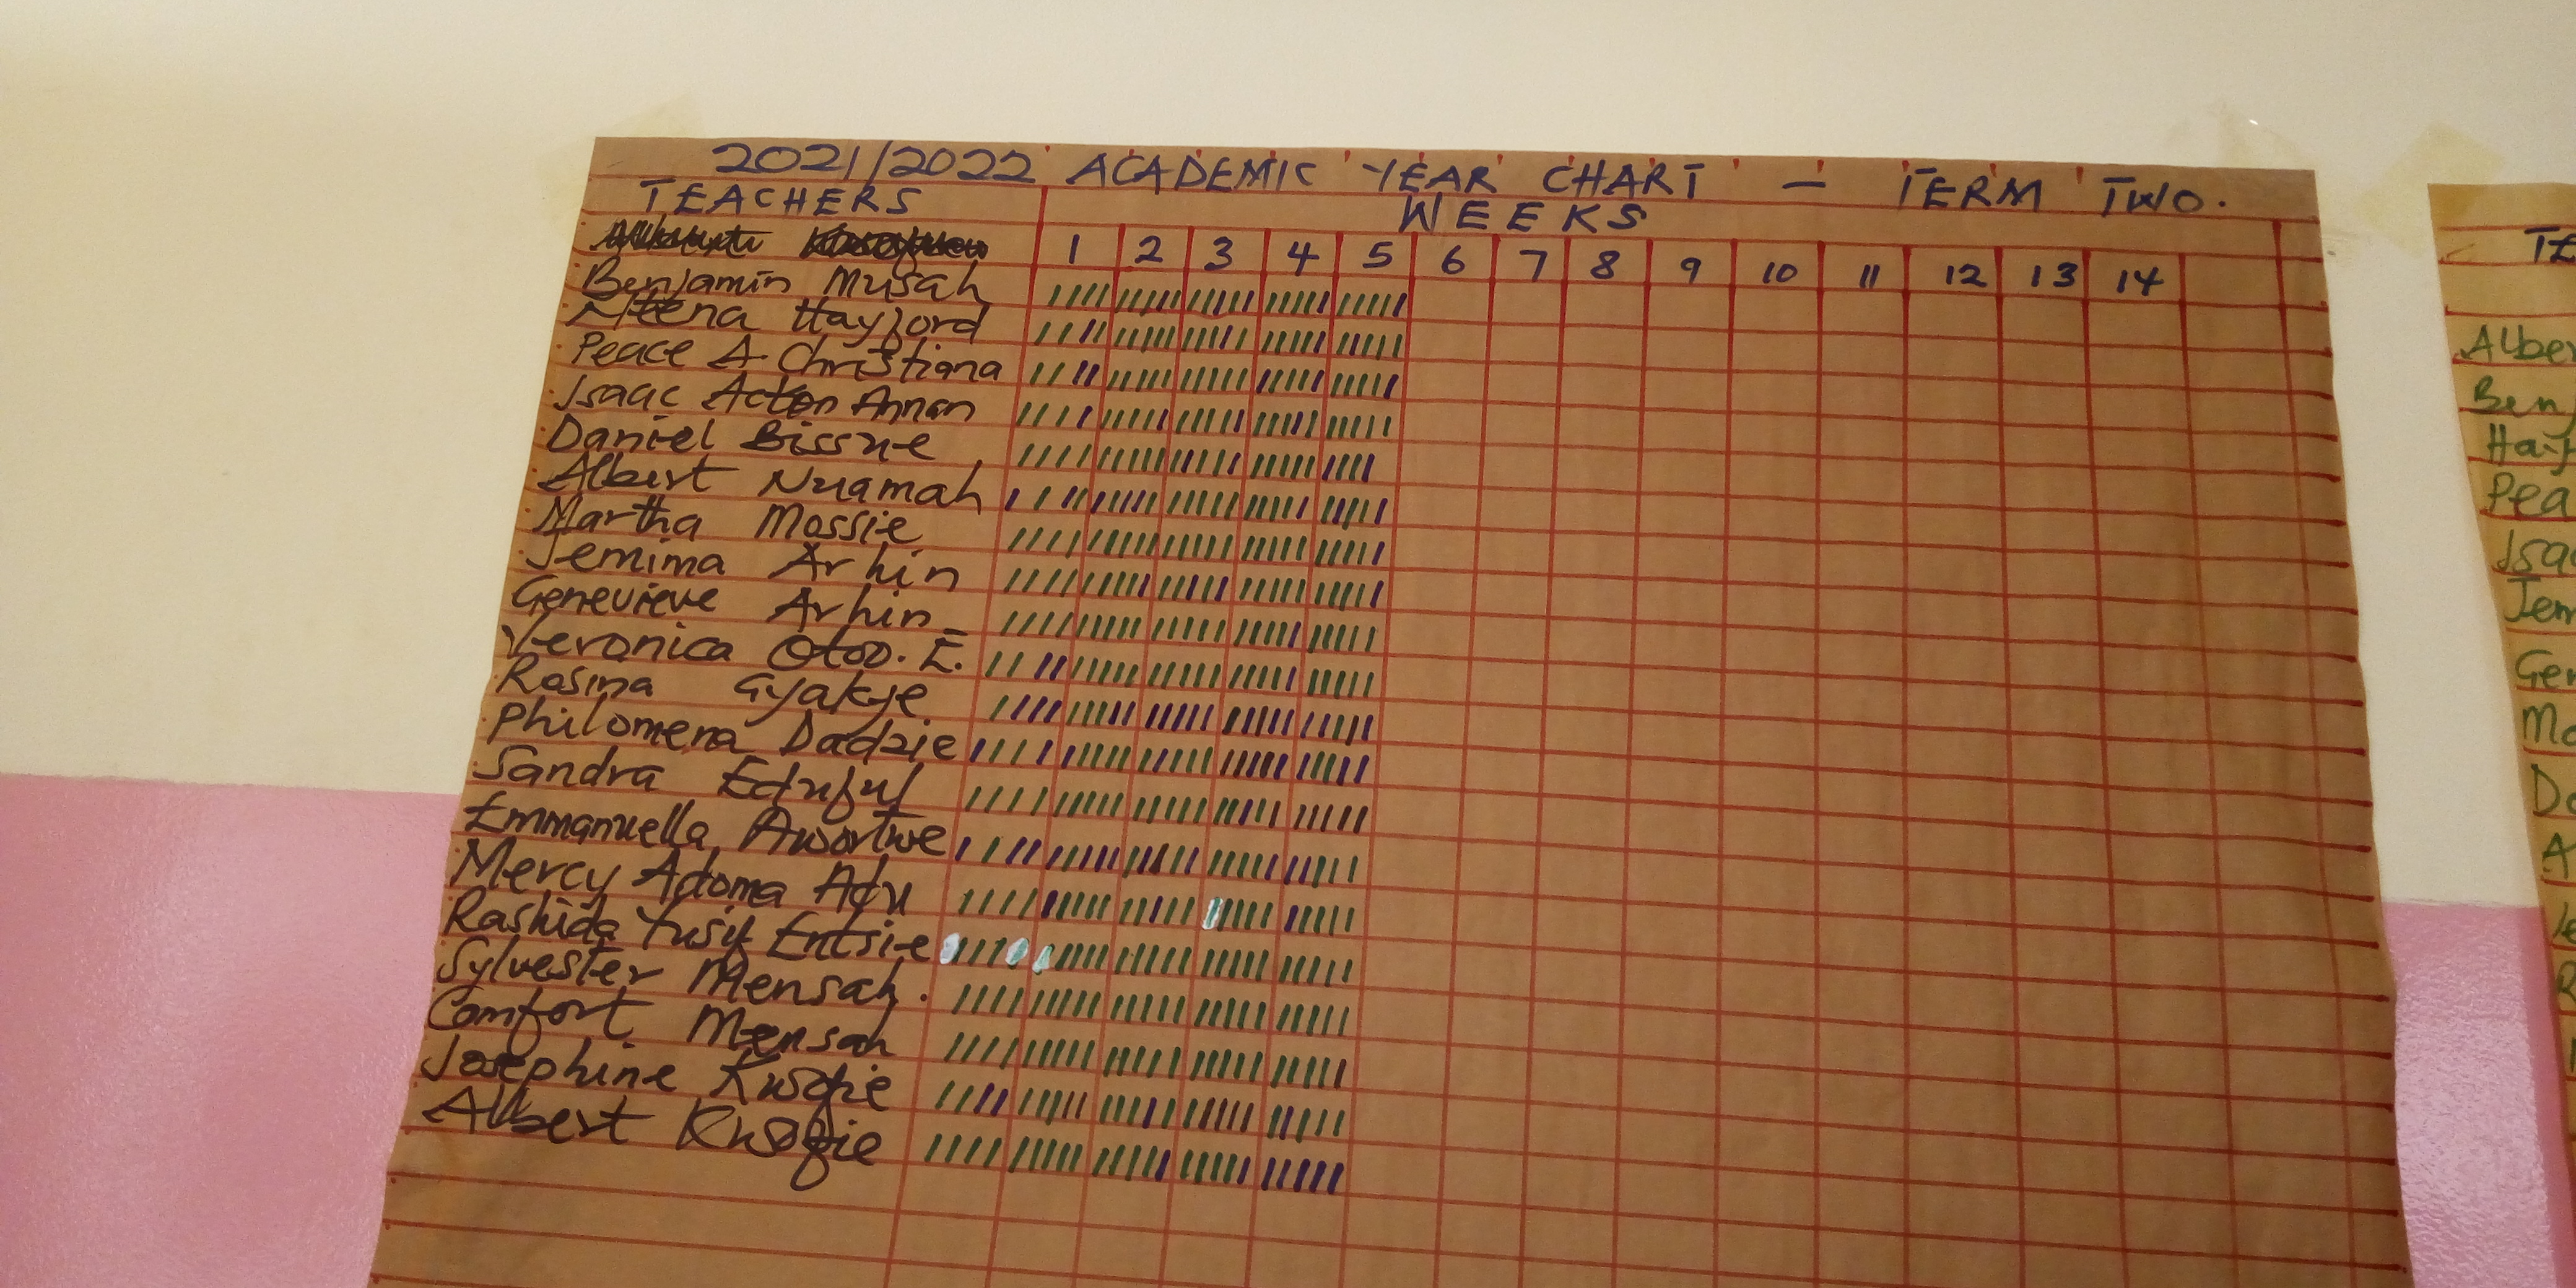 2021/2022 ACADEMIC YEAR CHART - TERM TWO.
TEACHERS
WEEKS
1 2 3 4 5 6 7 8 9 10 11 12 13 14
Benjamin Musah
Hayford
Peace A. Christiana
Isaac Acton Annan
Daniel Bissue
Albert Nuamah
Martha Mossie
Jemima Arhin
Genevieve Arhin
Veronica Otoo. E.
Rosina Gyakye
Philomena Dadzie
Sandra Eduful
Emmanuella Awortwe
Mercy Adoma Adu
Rashida Yusif Entsie
Sylvester Mensah.
Comfort Mensah
Josephine Kwofie
Albert Kwofie